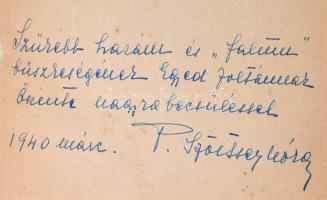 Szűkebb hazám és „falum"
büszkeségének Eged Zoltánnak
őszinte nagyrabecsüléssel
1940 márc. P. Szőtssey Nóra